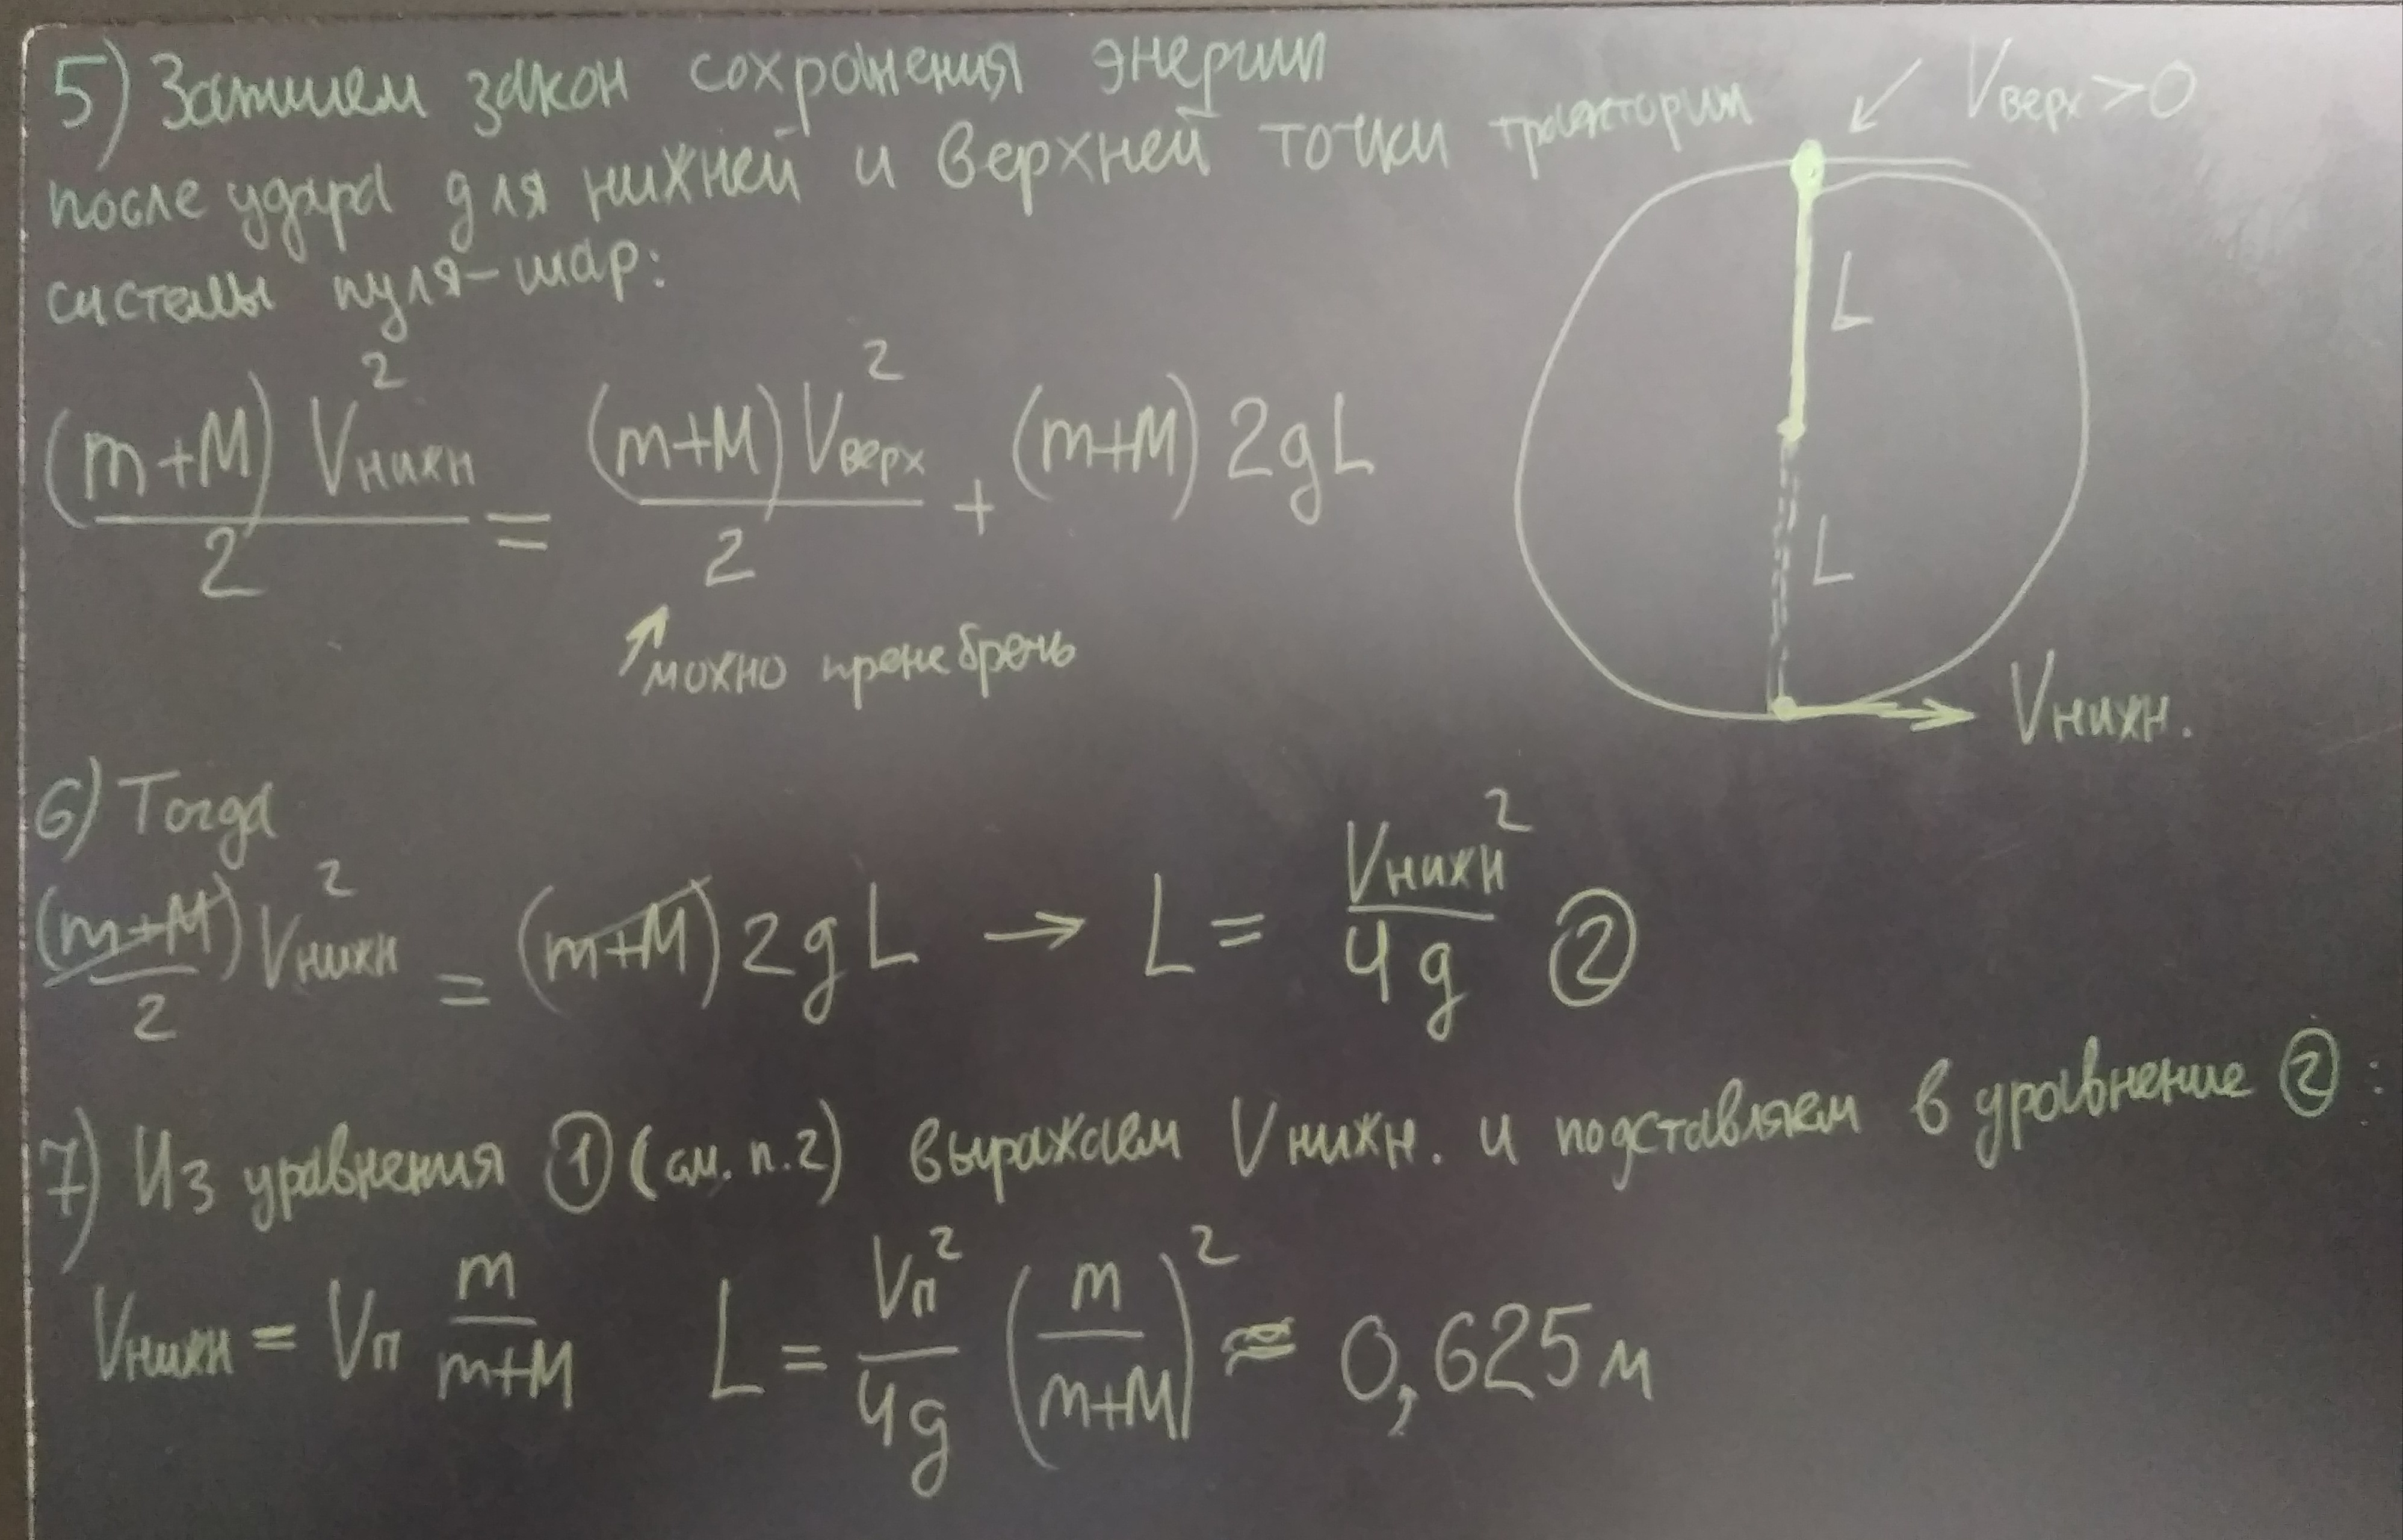 5) Запишем закон сохранения энергии
после удара для нижней и верхней точки траектории
системы пуля-шар:
Vверх > 0
L
L
Vнижн.
(m+M) Vнижн² / 2 = (m+M) Vверх² / 2 + (m+M) 2gL
можно пренебречь
6) Тогда
(m+M) / 2 Vнижн² = (m+M) 2gL → L = Vнижн² / 4g ②
7) Из уравнения ① (см. п.2) выражаем Vнижн. и подставляем в уравнение ②:
Vнижн = Vп m / m+M L = Vп² / 4g (m / m+M)² ≈ 0,625 м